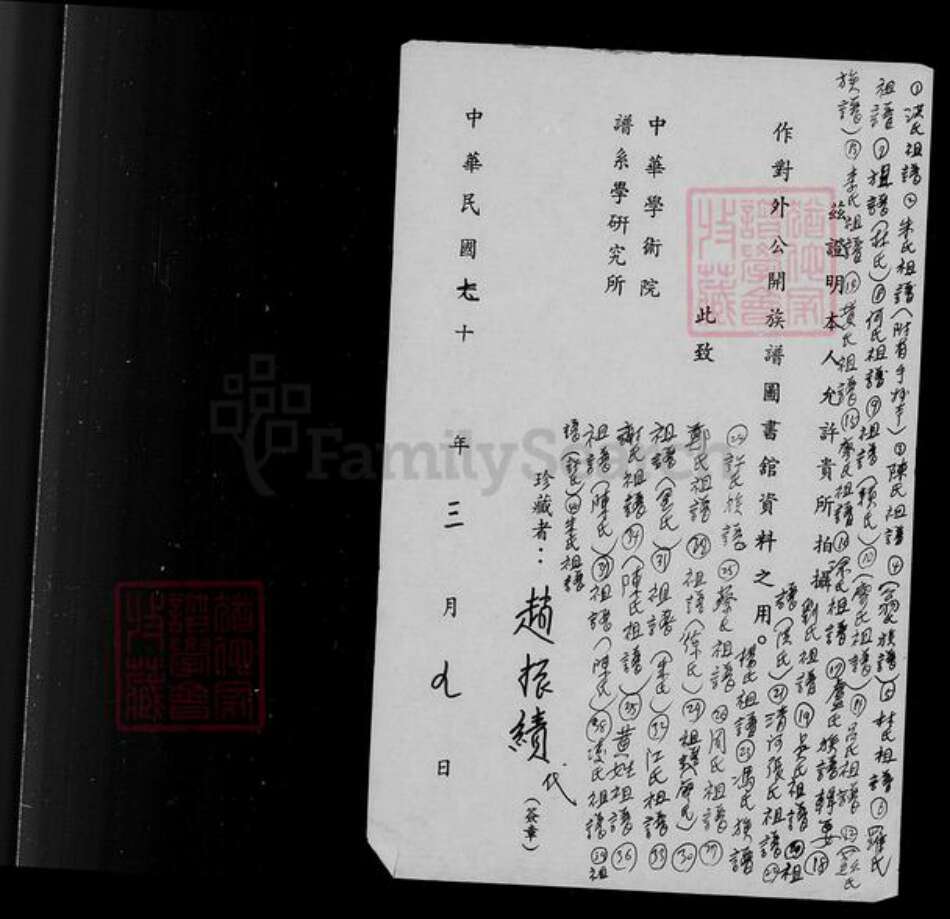 ①洪氏祖譜②朱氏祖譜(附有手抄本)③陳氏祖譜④(翁族譜)⑤杜氏祖譜⑥羅氏
祖譜⑦祖譜(林氏)⑧何氏祖譜⑨祖譜(賴氏)⑩(廖氏祖譜)⑪呂氏祖譜⑫(蘇氏
族譜)⑬李氏祖譜 黃氏祖譜⑮廖氏祖譜⑯徐氏祖譜⑰盧氏族譜輯要⑱
劉氏祖譜⑲吳氏祖譜⑳祖
譜(洪氏)㉑清河張氏祖譜
楊氏祖譜㉓馮氏族譜
㉔許氏族譜㉕蔡氏祖譜㉖周氏祖譜㉗
鄭氏祖譜㉘祖譜(徐氏)㉙祖譜(廖氏)㉚
祖譜(金氏)㉛祖譜(朱氏)㉜江氏祖譜㉝
謝氏祖譜㉞(陳氏祖譜)㉟黃姓祖譜㊱
祖譜(陳氏)㊲祖譜(陳氏)㊳凌氏祖譜㊴祖
譜 ㊵朱氏祖譜
茲證明本人允許貴所拍攝
作對外公開族譜圖書館資料之用。
此致
中華學術院
譜系學研究所
珍藏者：趙振績代(簽章)
中華民國七十年三月九日
FamilySearch